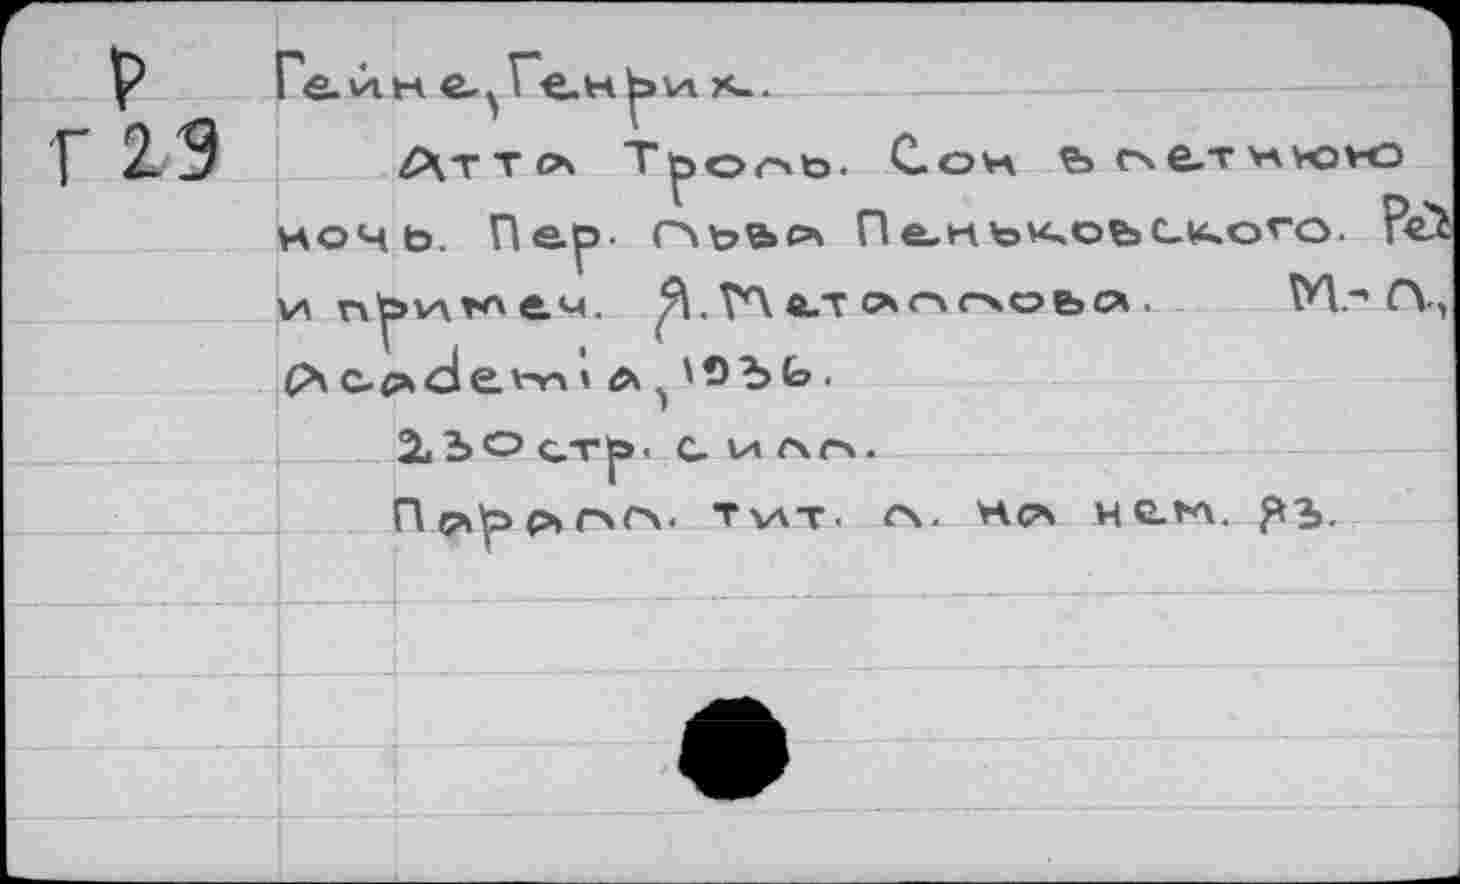 Р
Г 29
Гейне, Генрих.
Атта Троль. Сон в летнюю
ночь. Пер. Льва Пеньковского. Ред.
и примеч. Я. Металлова. М.-Л.,
Academia, 1936.
230 стр. с илл.
Паралл. тит. л. на нем. яз.